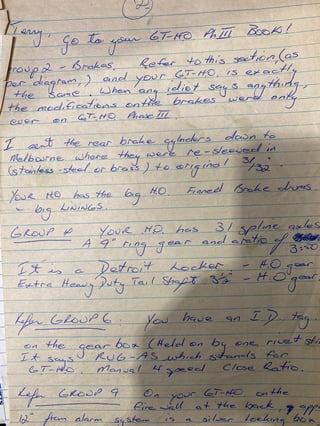 2
Terry, Go to your GT-HO Ph III BOOK!
roup 2 - Brakes. Refer to this section, (as
per diagram,) and your GT-HO. is exactly
the same. When any idiot says anything,
the modifications on the brakes were only
ever on GT-HO PHASE III.
I sent the rear brake cylinders down to
Melbourne where they were re-sleeved in
(stainless-steel or brass) to original 3/32
Your HO has the big H.O. Finned Brake drums
- big LININGS.
GROUP 4 YOUR H.O. has 31 spline axles
A 9" ring gear and a ratio of
3:50
It is a Detroit Locker - H.O gear
Extra Heavy Duty Tail Shaft - H.O gear.
Refer GROUP 6: You have an I.D. tag
on the gear box (Held on by one rivet
It says RUG-AS which stands for
GT-HO. Manual 4 speed Close Ratio.
Refer GROUP 9 On your GT-HO on the
fire wall at the back,
12" from alarm system is a silver locking box